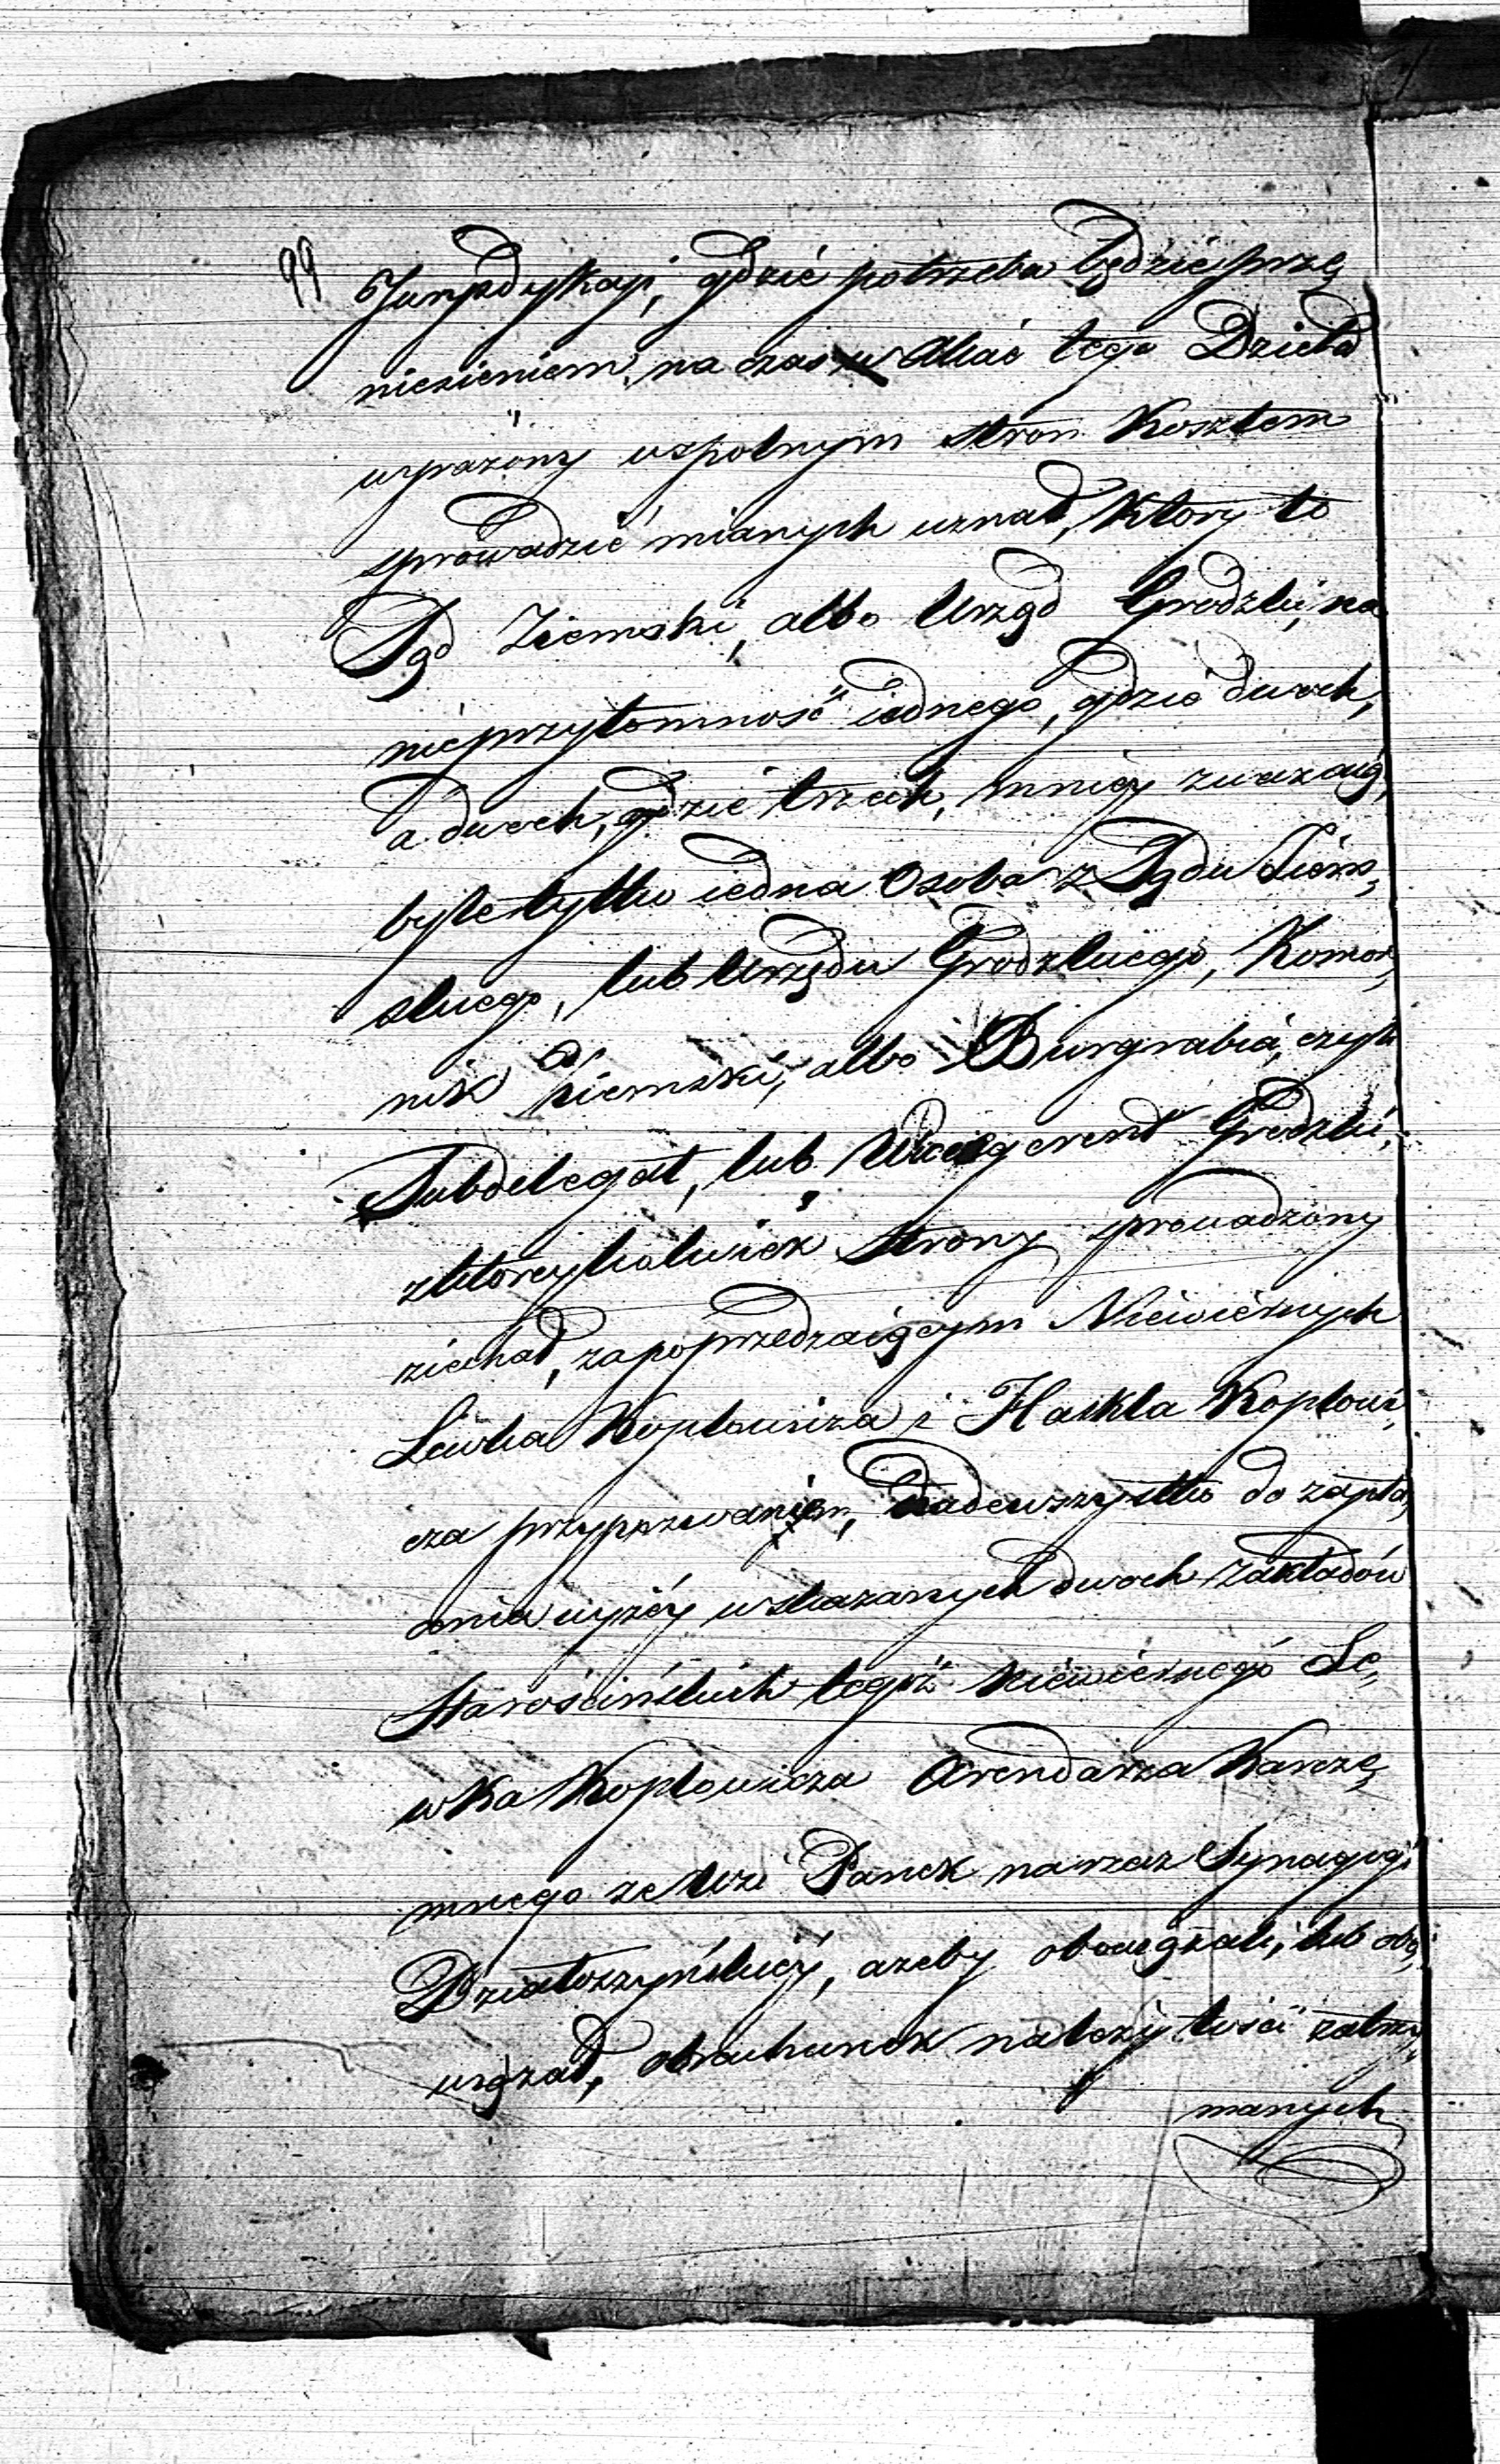 99
Jurysdykcyi, gdzie potrzeba będzie, przę
niesieniem, na czas w Akcie tego Dzieła
wyrażony wspolnym stron Kosztem
sprowadzić mianych uznał, Ktory to
Sąd Ziemski, albo Urząd Grodzki, na
nieprzytomność iednego, gdzie dwoch,
a dwoch, gdzie trzech, mniey zważaiąc,
byle tylko iedna Osoba z Sądu Ziem,
skiego, lub Urzędu Grodzkiego, Komor,
nik Ziemski, albo Burgrabia, czyli
Subdelegat, lub Vicegerent Grodzki,
z ktoreykolwiek Strony sprowadzony
ziechał, zapoprzedzaiącym Niewiernych
Lewka Koplowicza i Haskla Koplowi,
cza przypozwaniem, Nadewszystko do zapła,
cenia wyżey wskazanych dwoch Zakładów
Starościńskich tegoż Niewiernego Le,
wka Koplowicza Arendarza Karczę,
mnego ze Wsi Panek na rzecz Synagogi
Działoszyńskiey, ażeby obowiązali, lub obo,
wiązał, obrachunek należytości zatrzy,
manych